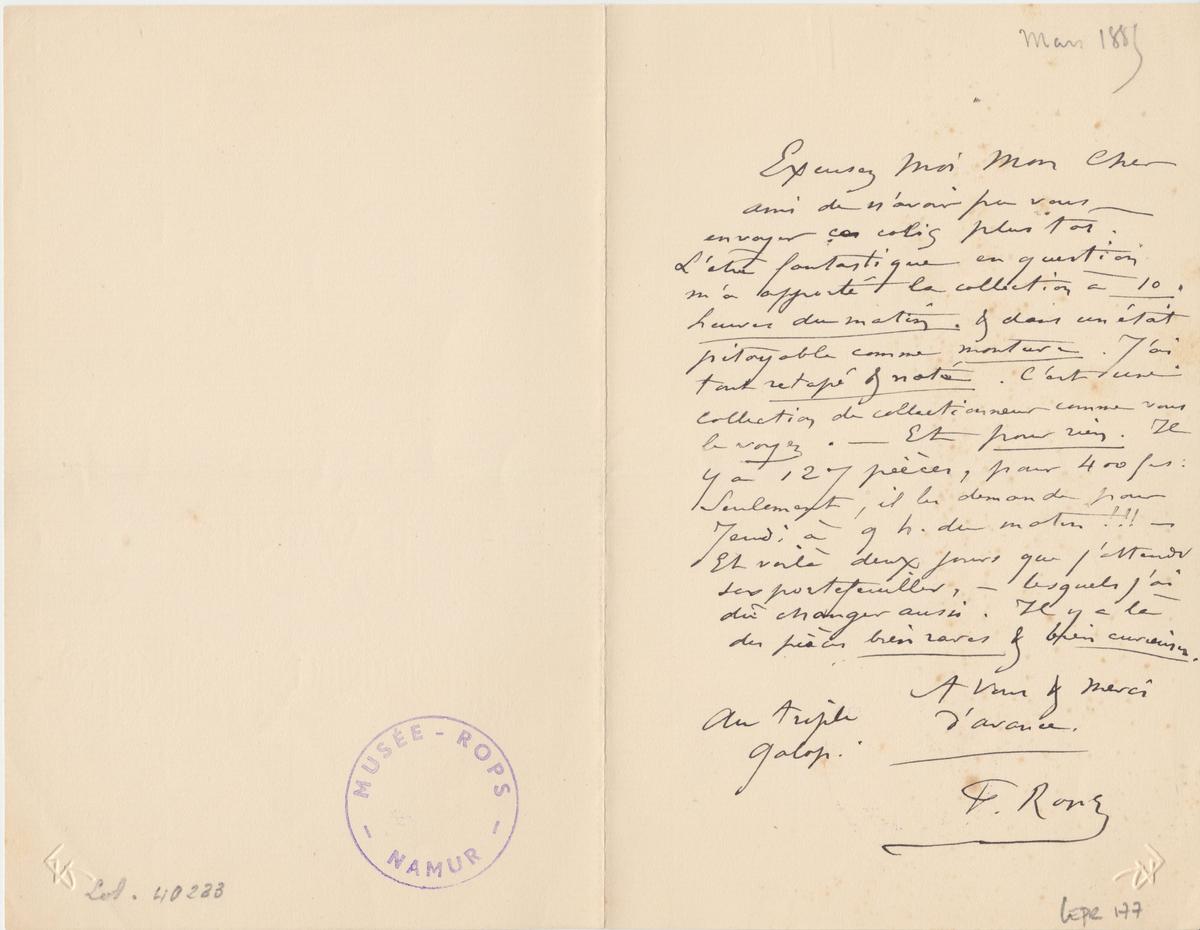 MUSÉE - ROPS
- NAMUR -
Lot. 40233
Mars 1885
Excusez Moi Mon Cher
ami de n'avoir pu vous
envoyer ces colis plus tôt.
L'être fantastique en question
m'a apporté la collection à 10.
heures du matin. & dans un état
pitoyable comme monture. J'ai
tout retapé & noté. C'est une
collection de collectionneur comme vous
le voyez. — Et pour rien. Il
y a 127 pièces, pour 400 frs:
Seulement, il les demande pour
Jeudi à 9 h. du matin!!! —
Et voilà deux jours que j'attends
ses portefeuilles, — lesquels j'ai
dû changer aussi. Il y a là
des pièces bien rares & bien curieuses.
A Vous & Merci
d'avance.
Au triple
Galop.
F. Rops
LEPR 177